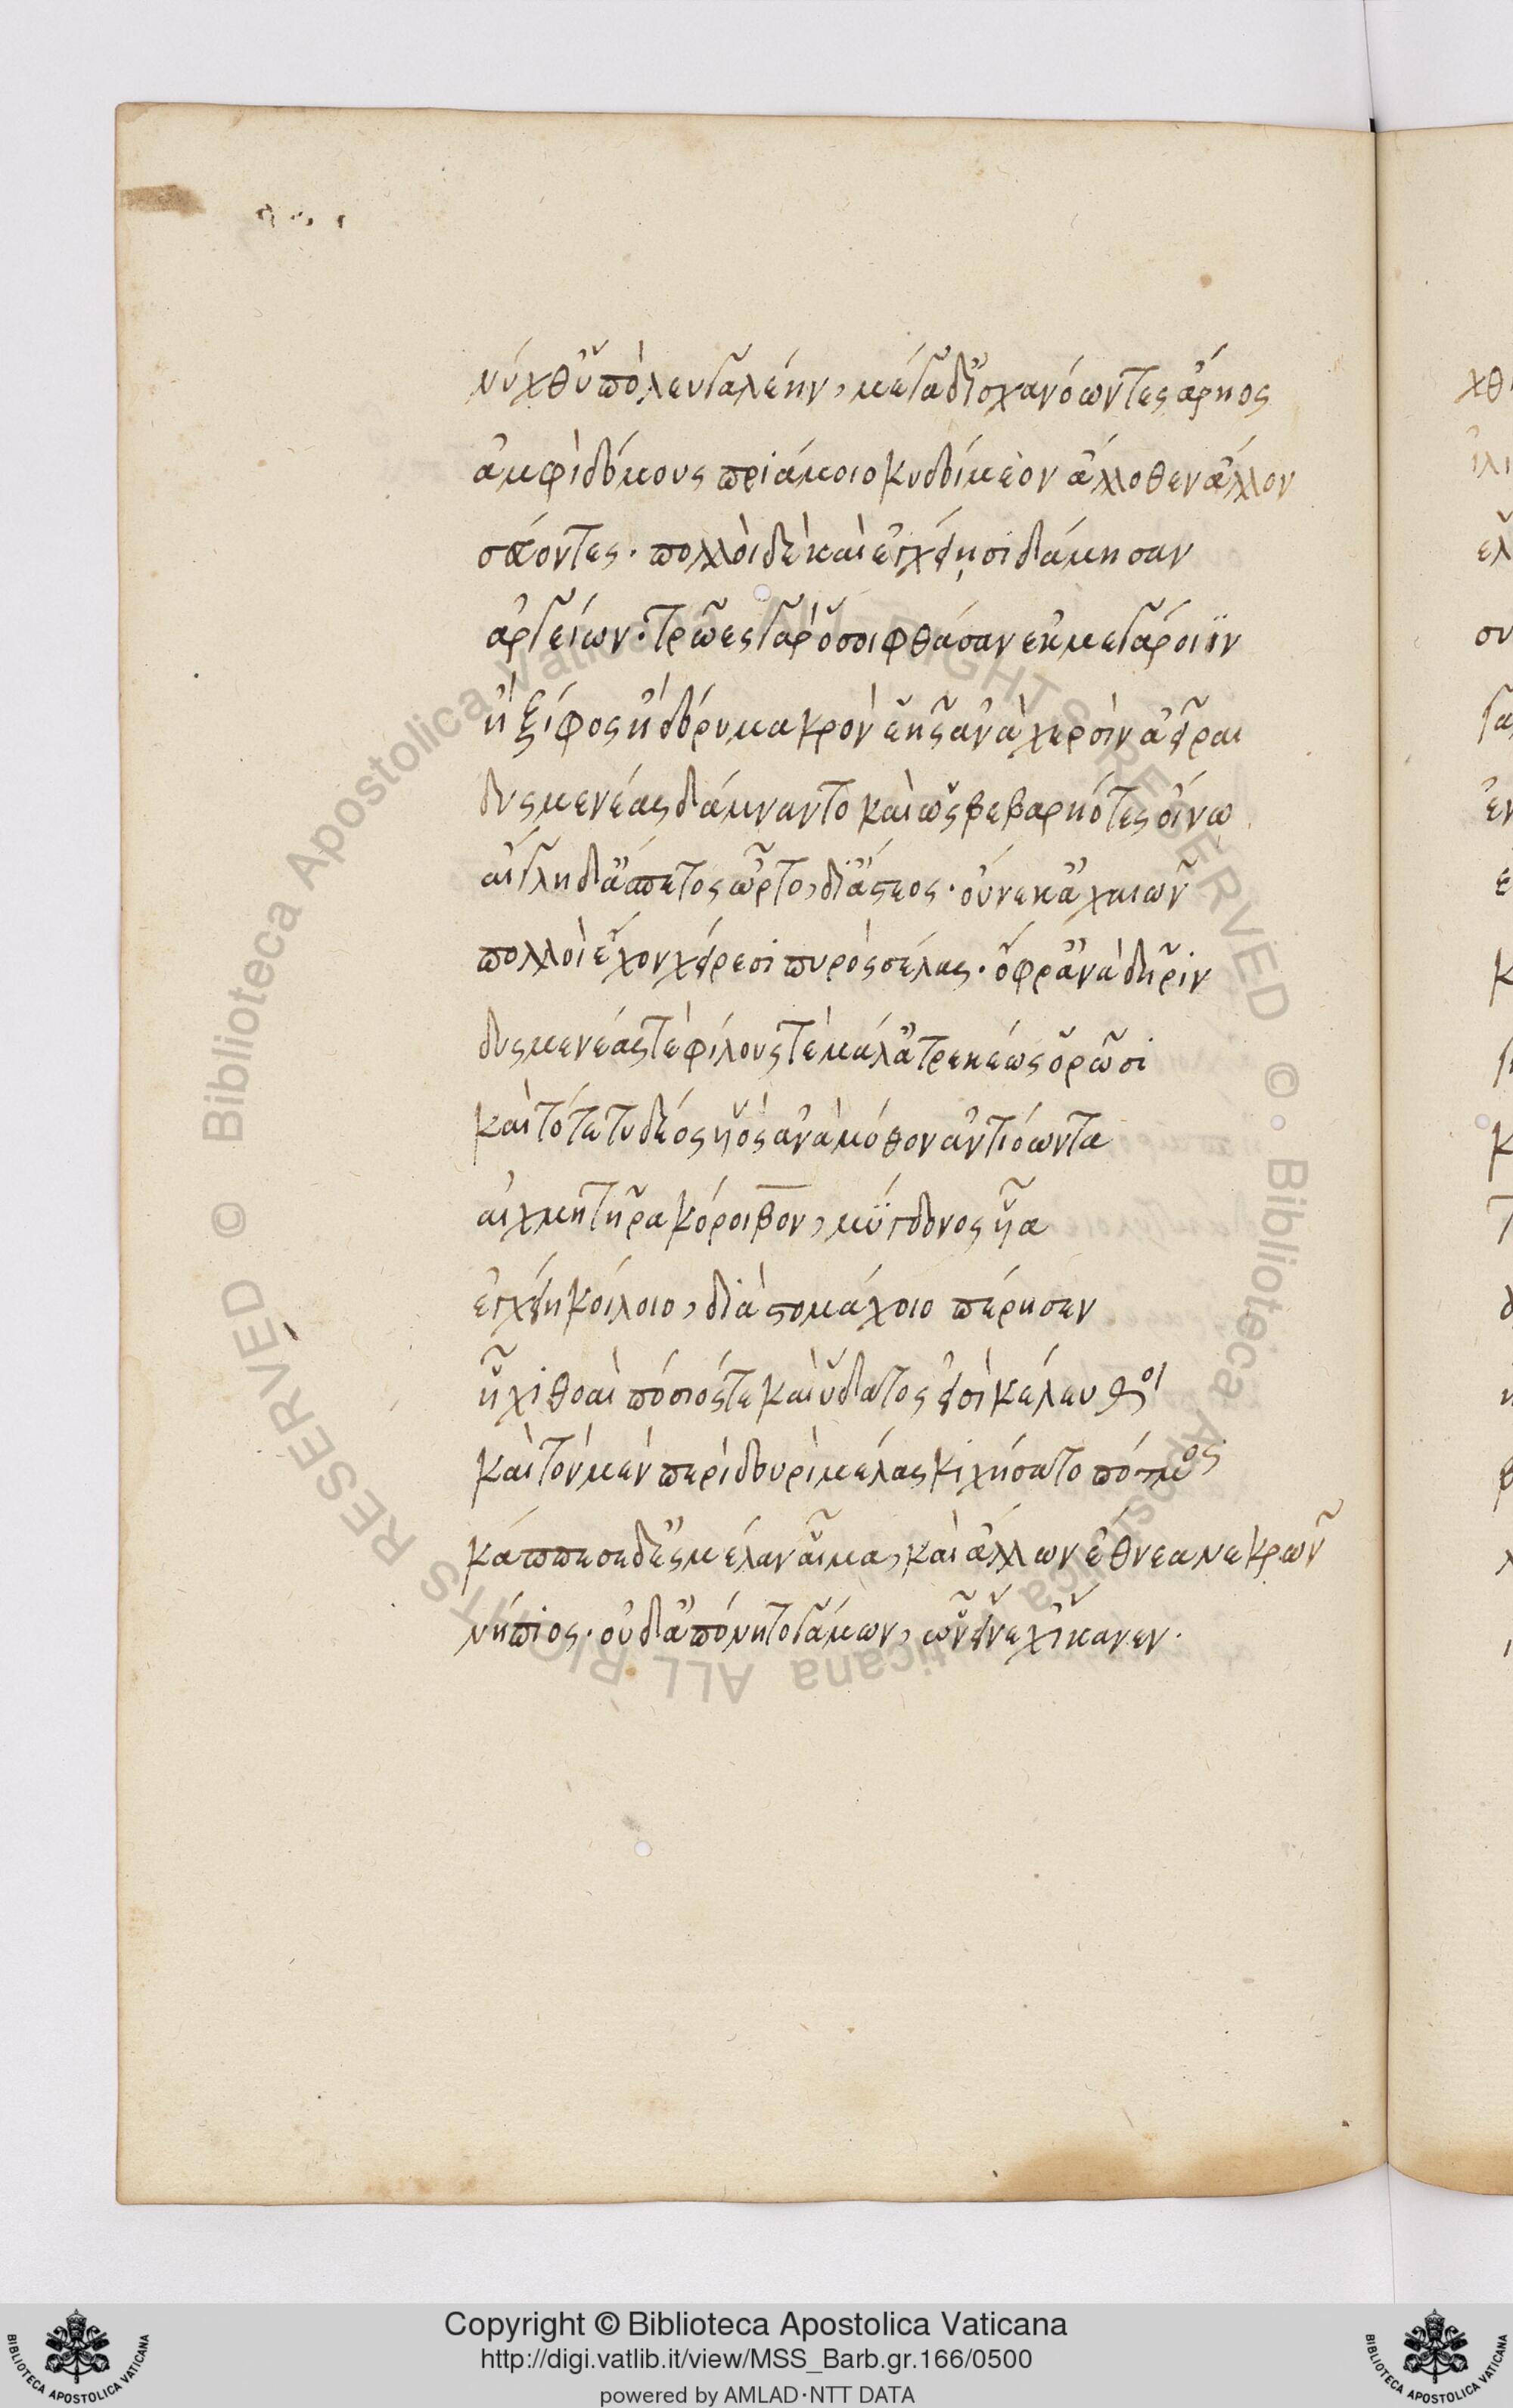 νύχθ' ὕπο λευγαλέην, μέγα δ' ἰσχανόωντες ἄρηος
ἀμφὶ δόμους πριάμοιο κυδοίμεον ἄλλοθεν ἄλλον
σεύοντες. πολλοὶ δὲ καὶ ἐγχείῃσι δάμησαν
ἀργείων. τρῶες γὰρ ὅσοι φθάσαν ἐκ μεγάροιϊν
ἢ ξίφος ἢ δόρυ μακρὸν ἑῇς ἀνὰ χερσὶν ἀεῖραι
δυσμενέας δάμναντο καὶ ὣς βεβαρηότες οἴνω
αἴγλη δ' ἄσπετος ὦρτο, δι' ἄστεος. οὕνεκ' ἀχαιῶν
πολλοὶ ἔχον χείρεσι πυρὸς σέλας. ὄφρ' ἀνὰ δῆριν
δυσμενέας τὲ φίλους τὲ μάλ' ἀτρεκέως ὁρῶσι
καὶ τότε τυδέος υἱὸς ἀνὰ μόθον ἀντιόωντα
αἰχμητῆρα κόροιβον, μΰγδονος υἷα
ἐγχείη κοίλοιο, διὰ στομάχοιο πέρησεν
ἧχι θοαὶ πόσιός τε καὶ ὕδατος εἰσὶ κέλευθοι
καὶ τὸν μὲν περὶ δουρὶ μέλας κιχήσατο πότμος
κάππεσε δ' ἐς μέλαν αἷμα, καὶ ἄλλων ἔθνεα νεκρῶν
νήπιος. οὐδ' ἀπόνητο γάμων, ὧν εἵνεχ' ἵκανεν.
Copyright © Biblioteca Apostolica Vaticana
http://digi.vatlib.it/view/MSS_Barb.gr.166/0500
powered by AMLAD·NTT DATA